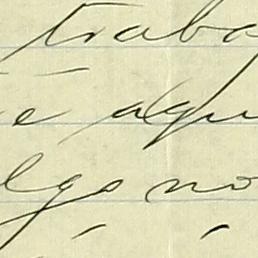 traba
é aqu
lgo no